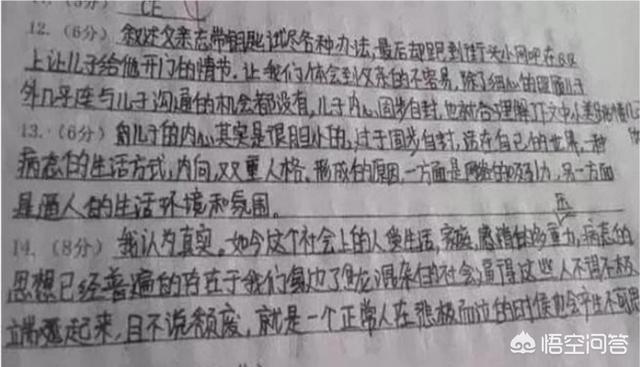 12. (6分) 叙述父亲忘带钥匙试尽各种办法,最后却跑到街头小网吧在QQ
上让儿子给他开门的情节,让我们体会到父亲的不容易,除了细心的照顾儿子
外几乎连与儿子沟通的机会都没有,儿子内心固步自封,也就
13. (6分) 向儿子的内心其实是很胆小的,过于固步自封,活在自己的世界,一种
病态的生活方式,内向,双重人格,形成的原因,一方面是网络的吸引力,另一方面
是逼人的生活环境和氛围。
14. (8分) 我认为真实。如今这个社会上的人受生活,家庭,感情的多重压力,病态的
思想已经普遍的存在于我们身边了鱼龙混杂的社会,逼得这些人不得不极
端起来,且不说颓废,就是一个正常人在悲极而泣的时候也会产生不
悟空问答